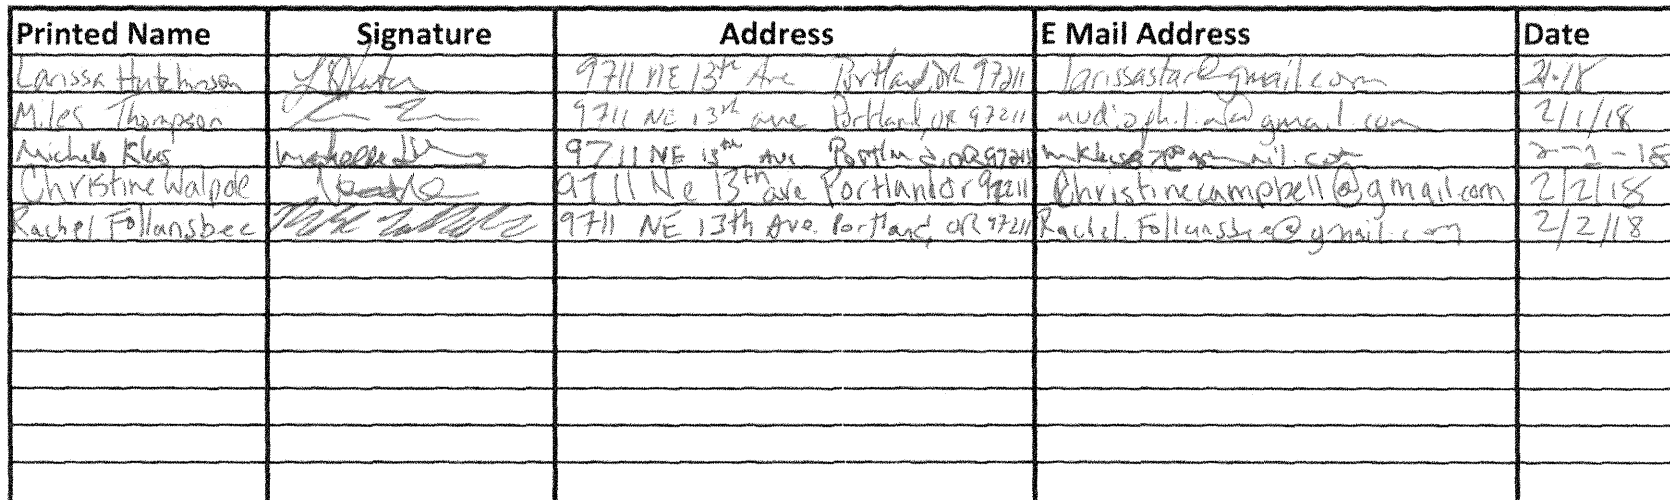 Printed Name Signature Address E Mail Address Date
Larissa Hutchinson 9711 NE 13th Ave Portland, OR 97211 larissastar@gmail.com
Miles Thompson 9711 NE 13rd ave Portland, OR 97211 @gmail.com 2/1/18
Michelle 9711 NE 13th Ave Portland, OR 97211 2-1-18
Christine Walpole 9711 Ne 13th ave Portland or 97211 Christinecampbell@gmail.com 2/2/18
Rachel Follansbee 9711 NE 13th Ave. Portland, OR 97211 Rachel.Follansbee@gmail.com 2/2/18